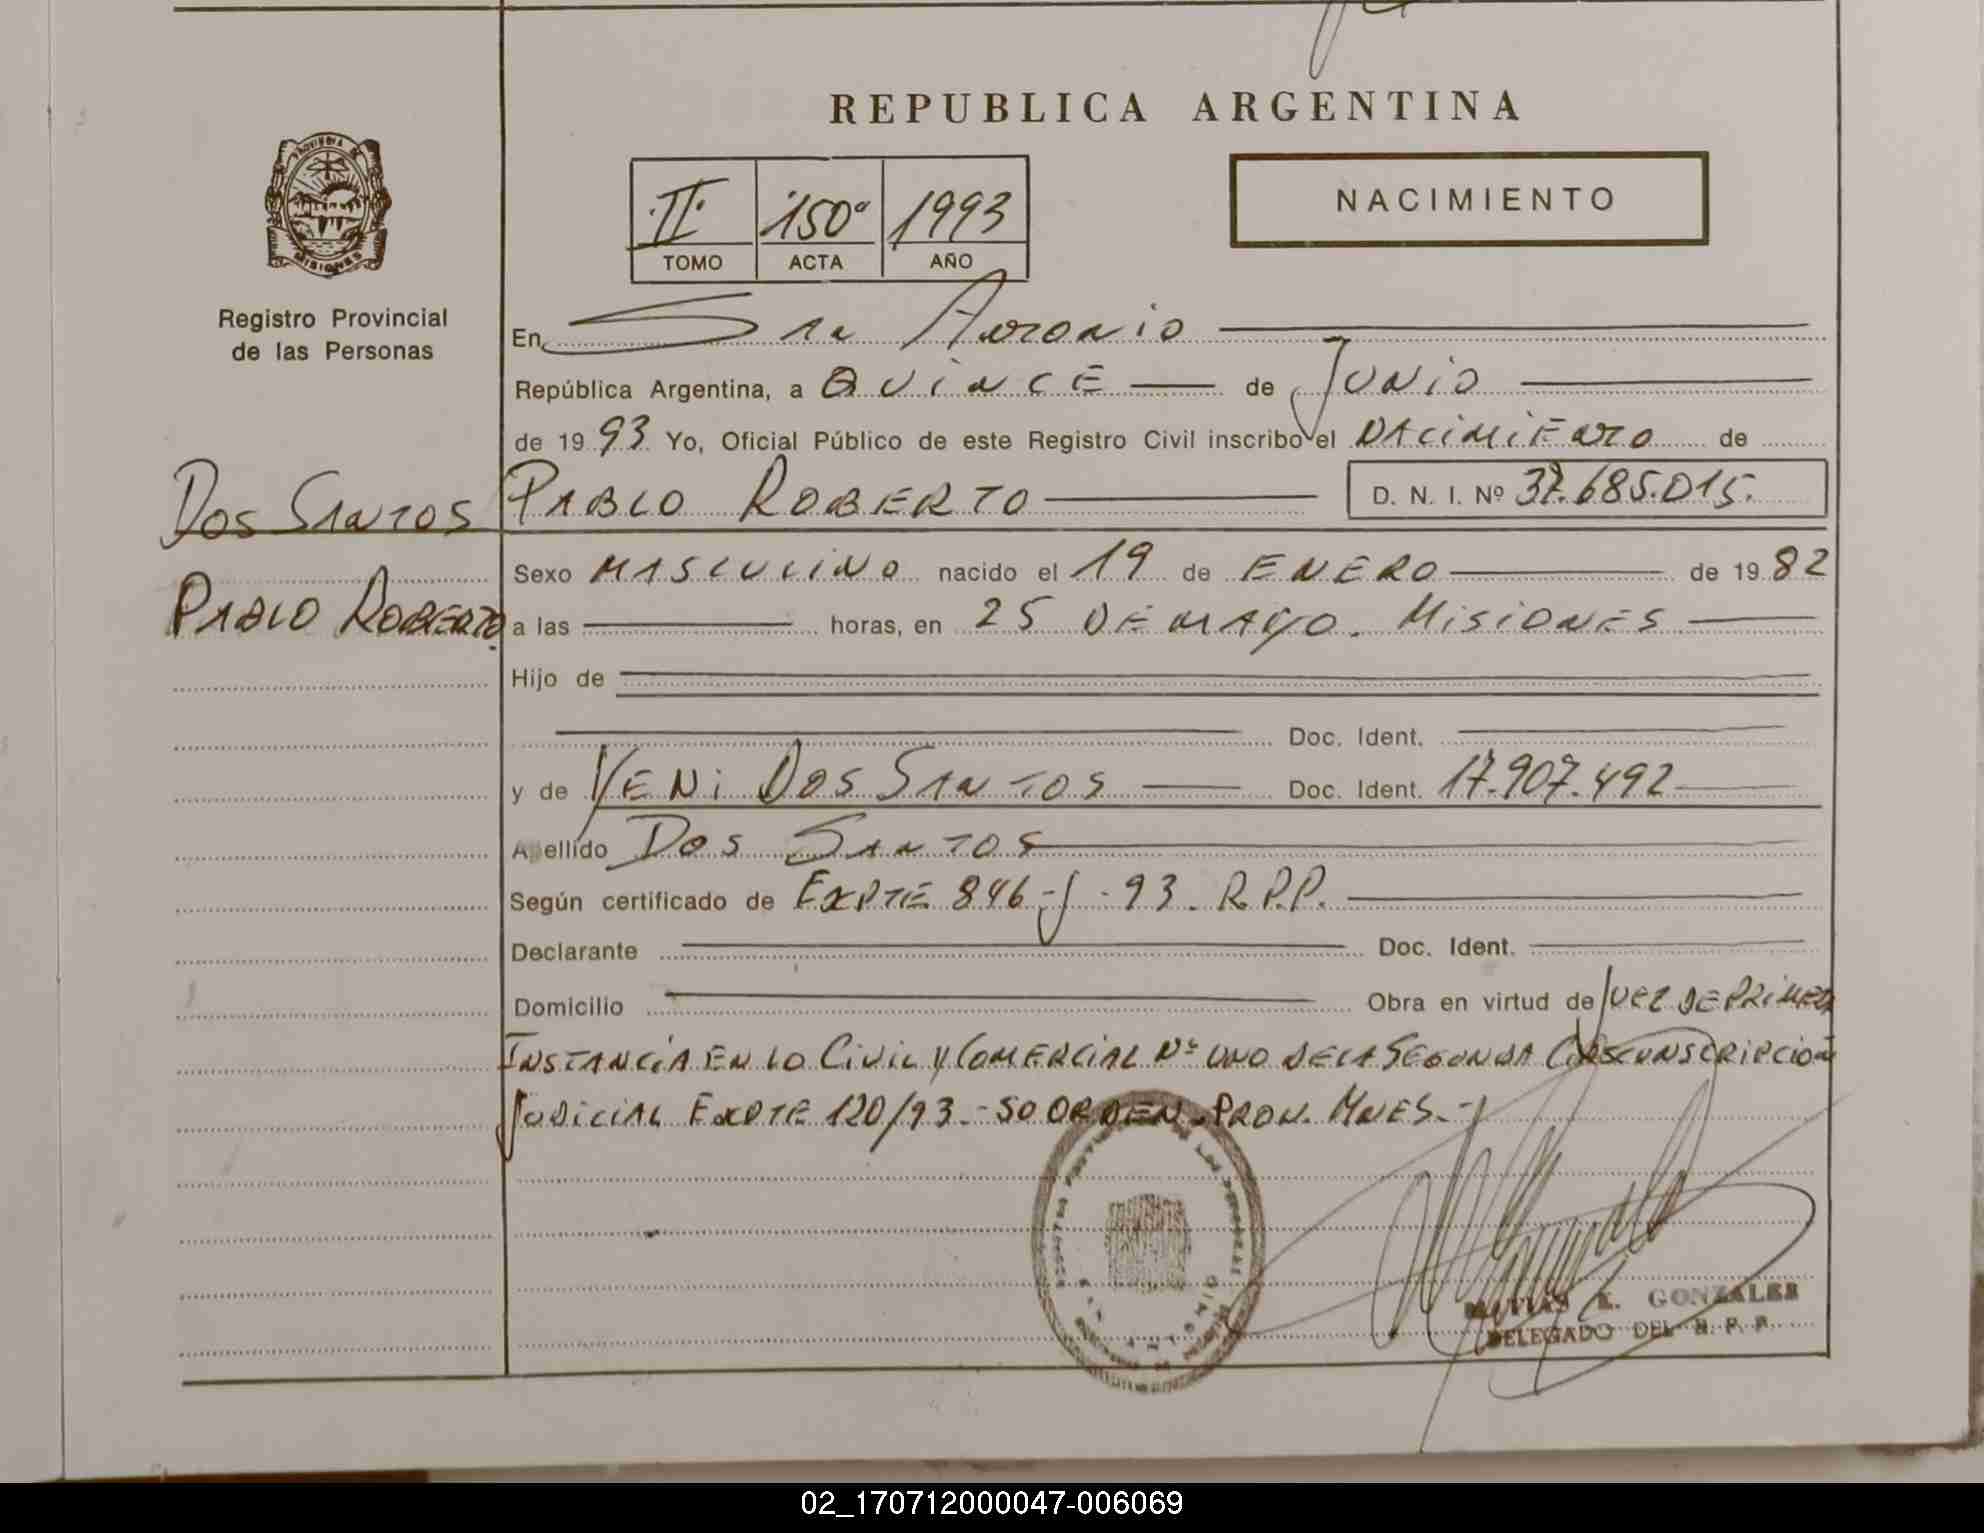 REPUBLICA ARGENTINA
NACIMIENTO
II 150º 1993
TOMO ACTA AÑO
PROVINCIA DE MISIONES
Registro Provincial
de las Personas
En San Antonio
República Argentina, a QUINCE de JUNIO
de 19 93 Yo, Oficial Público de este Registro Civil inscribo el NACIMIENTO de
DOS SANTOS
PABLO ROBERTO
PABLO ROBERTO D. N. I. Nº 37.685.015.
Sexo MASCULINO nacido el 19 de ENERO de 19 82
a las horas, en 25 DE MAYO. MISIONES
Hijo de
Doc. Ident.
y de VENI DOS SANTOS Doc. Ident. 17.907.492
Apellido DOS SANTOS
Según certificado de EXPTE 846-J-93. R.P.P.
Declarante Doc. Ident.
Domicilio Obra en virtud de JUEZ DE PRIMERA
INSTANCIA EN LO CIVIL Y COMERCIAL Nº UNO DE LA SEGUNDA CIRSCUNSCRIPCION
JUDICIAL EXPTE 120/93.- SO ORDEN. PROV. MNES.-
MATIAS E. GONZALES
DELEGADO DEL R. P. P.
02_170712000047-006069